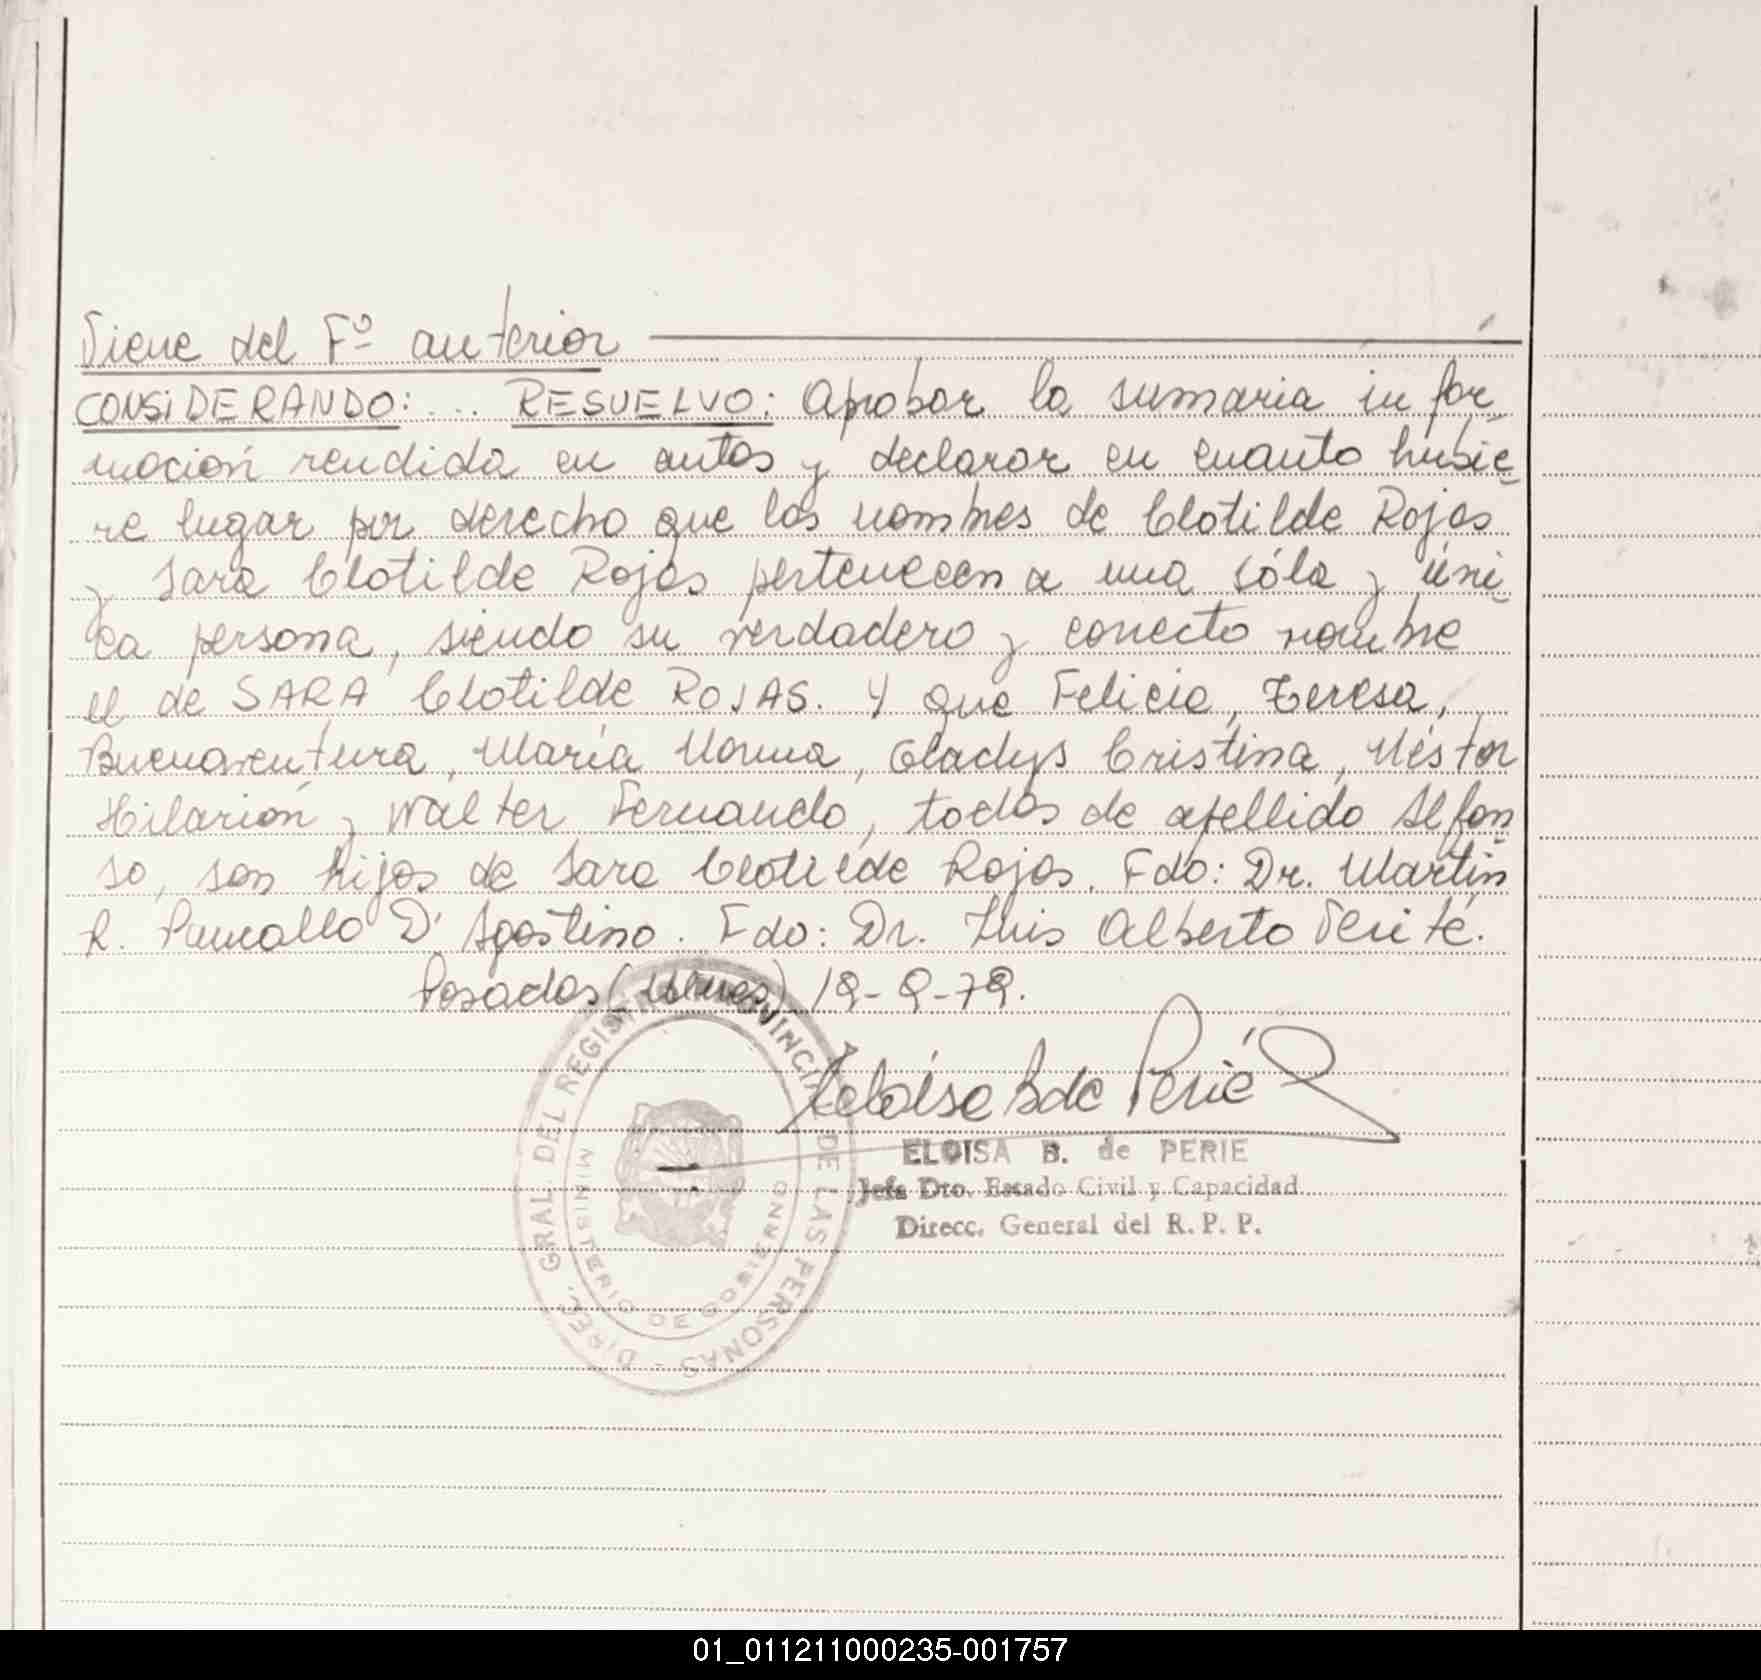 Viene del Fº anterior
CONSiDERANDO: ... RESUELVO: Aprobar la sumaria infor-
mación rendida en autos y declarar en cuanto hubie-
re lugar por derecho que los nombres de Clotilde Rojas
y Sara Clotilde Rojas pertenecen a una sóla y úni-
ca persona, siendo su verdadero y correcto nombre
el de SARA Clotilde ROJAS. Y que Felicia, Teresa,
Buenaventura, María Norma, Gladys Cristina, Néstor
Hilarión y Walter Fernando, todos de apellido Alfon-
so, son hijos de Sara Clotilde Rojas. Fdo: Dr. Martín
R. D'Agostino. Fdo: Dr. Luis Alberto
Posadas (Mnes) 19-9-79.
Eloisa B de Perié
ELOISA B. de PERIE
Jefa Dto. Estado Civil y Capacidad
Direcc. General del R. P. P.
DIREC. GRAL. DEL REGIST. PROVINCIAL DE LAS PERSONAS -
MINISTERIO DE GOBIERNO
01_011211000235-001757